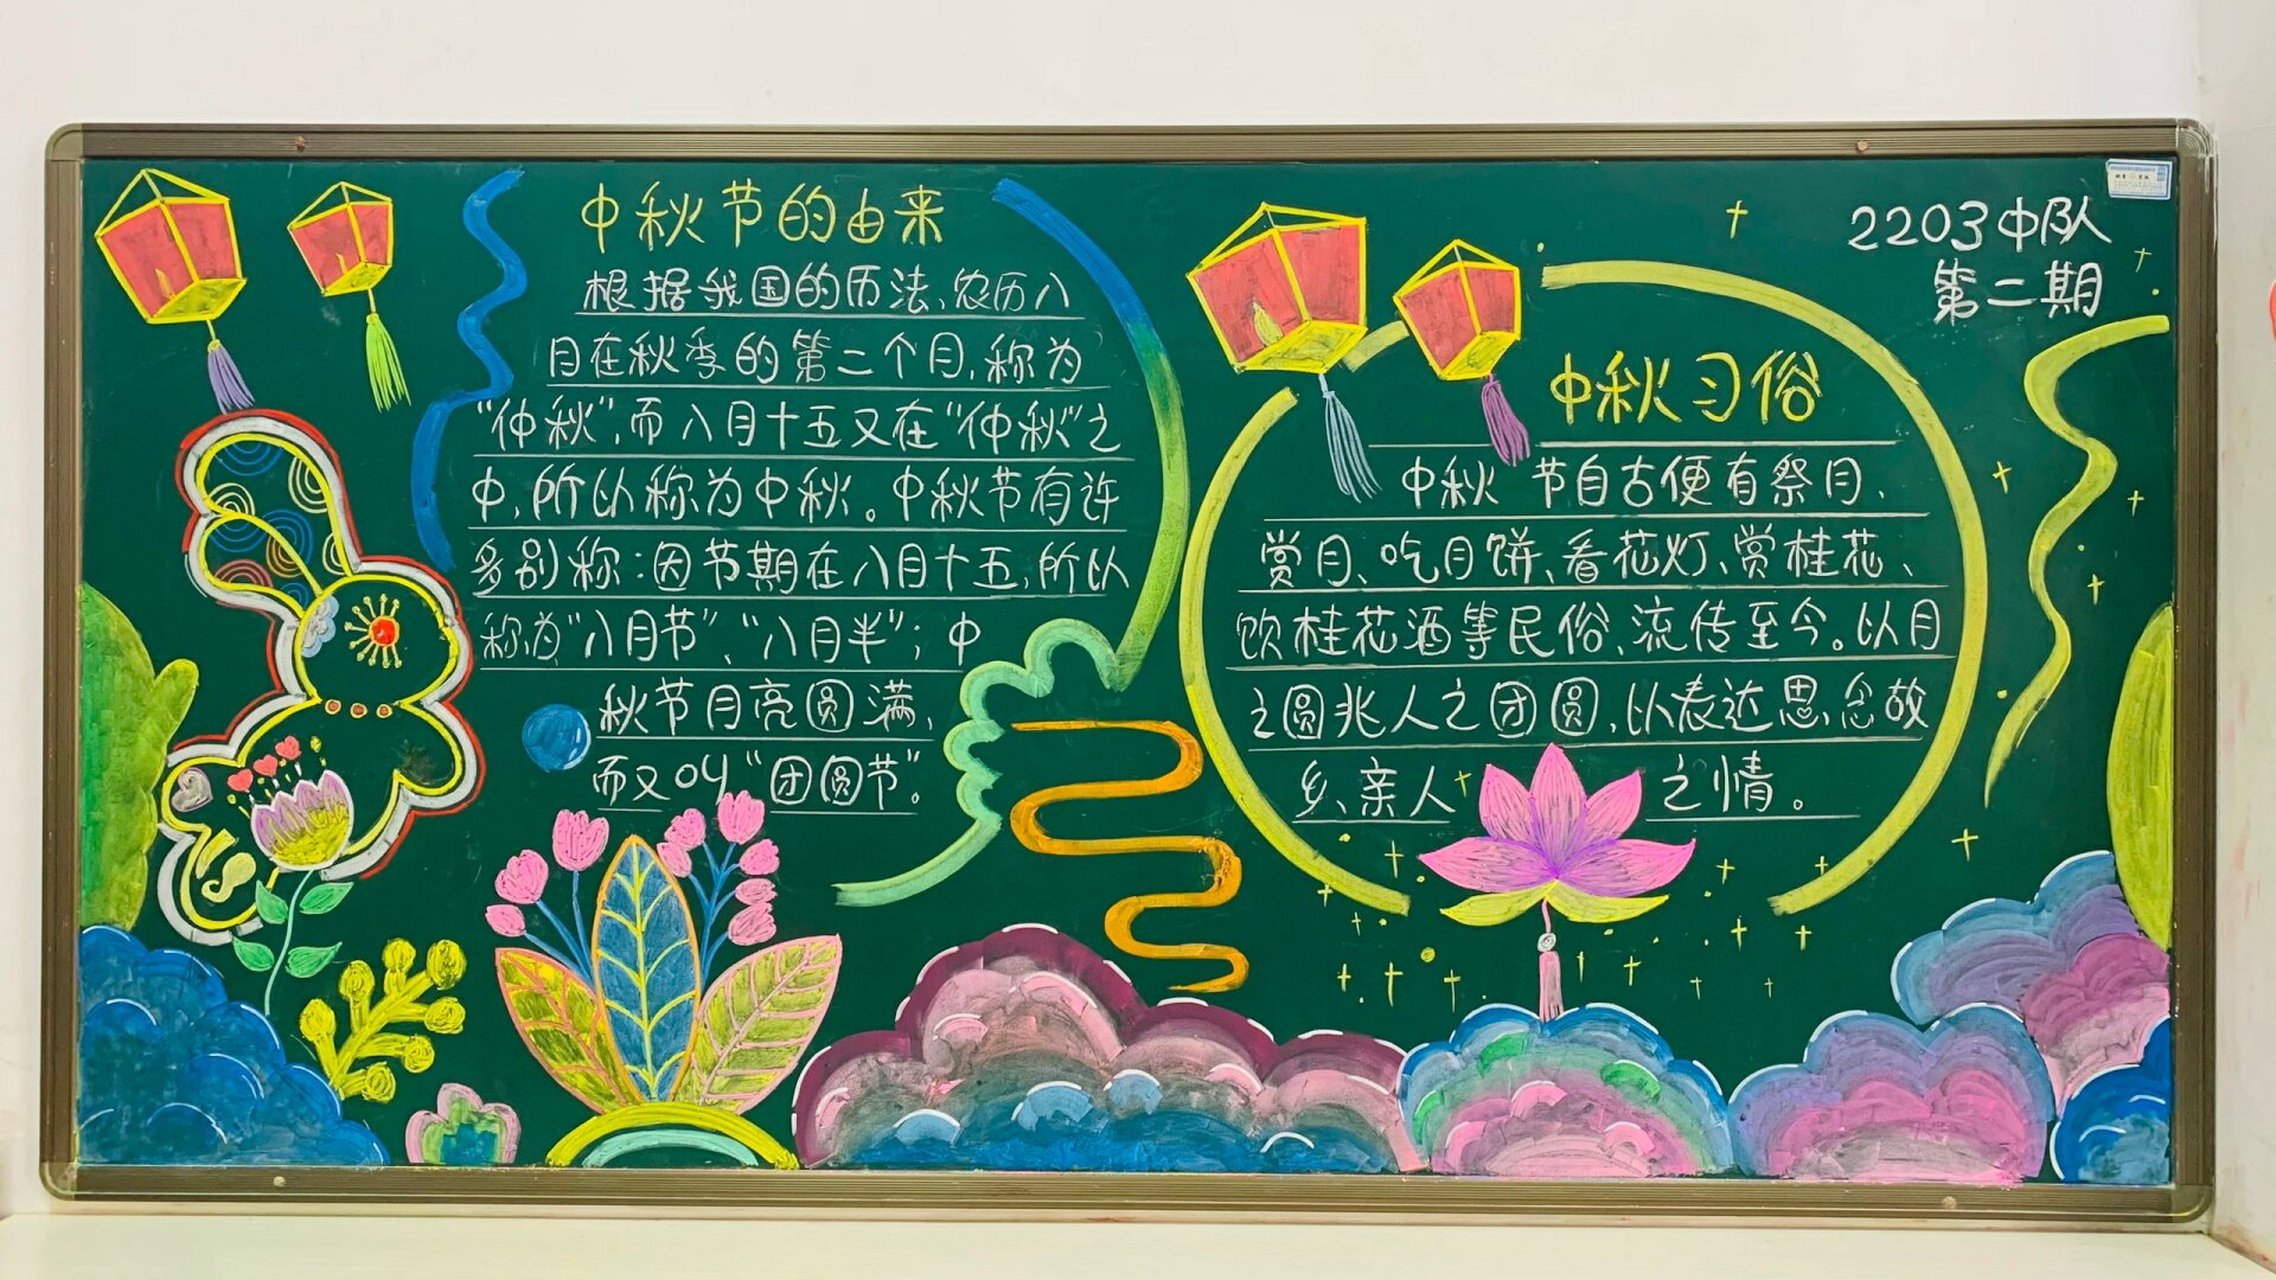 中秋节的由来
根据我国的历法，农历八
月在秋季的第二个月，称为
“仲秋”，而八月十五又在“仲秋”之
中，所以称为中秋。中秋节有许
多别称：因节期在八月十五，所以
称为“八月节”、“八月半”；中
秋节月亮圆满，
而又叫“团圆节”。
2203中队
第二期
中秋习俗
中秋节自古便有祭月、
赏月、吃月饼、看花灯、赏桂花、
饮桂花酒等民俗，流传至今。以月
之圆兆人之团圆，以表达思念故
乡、亲人之情。